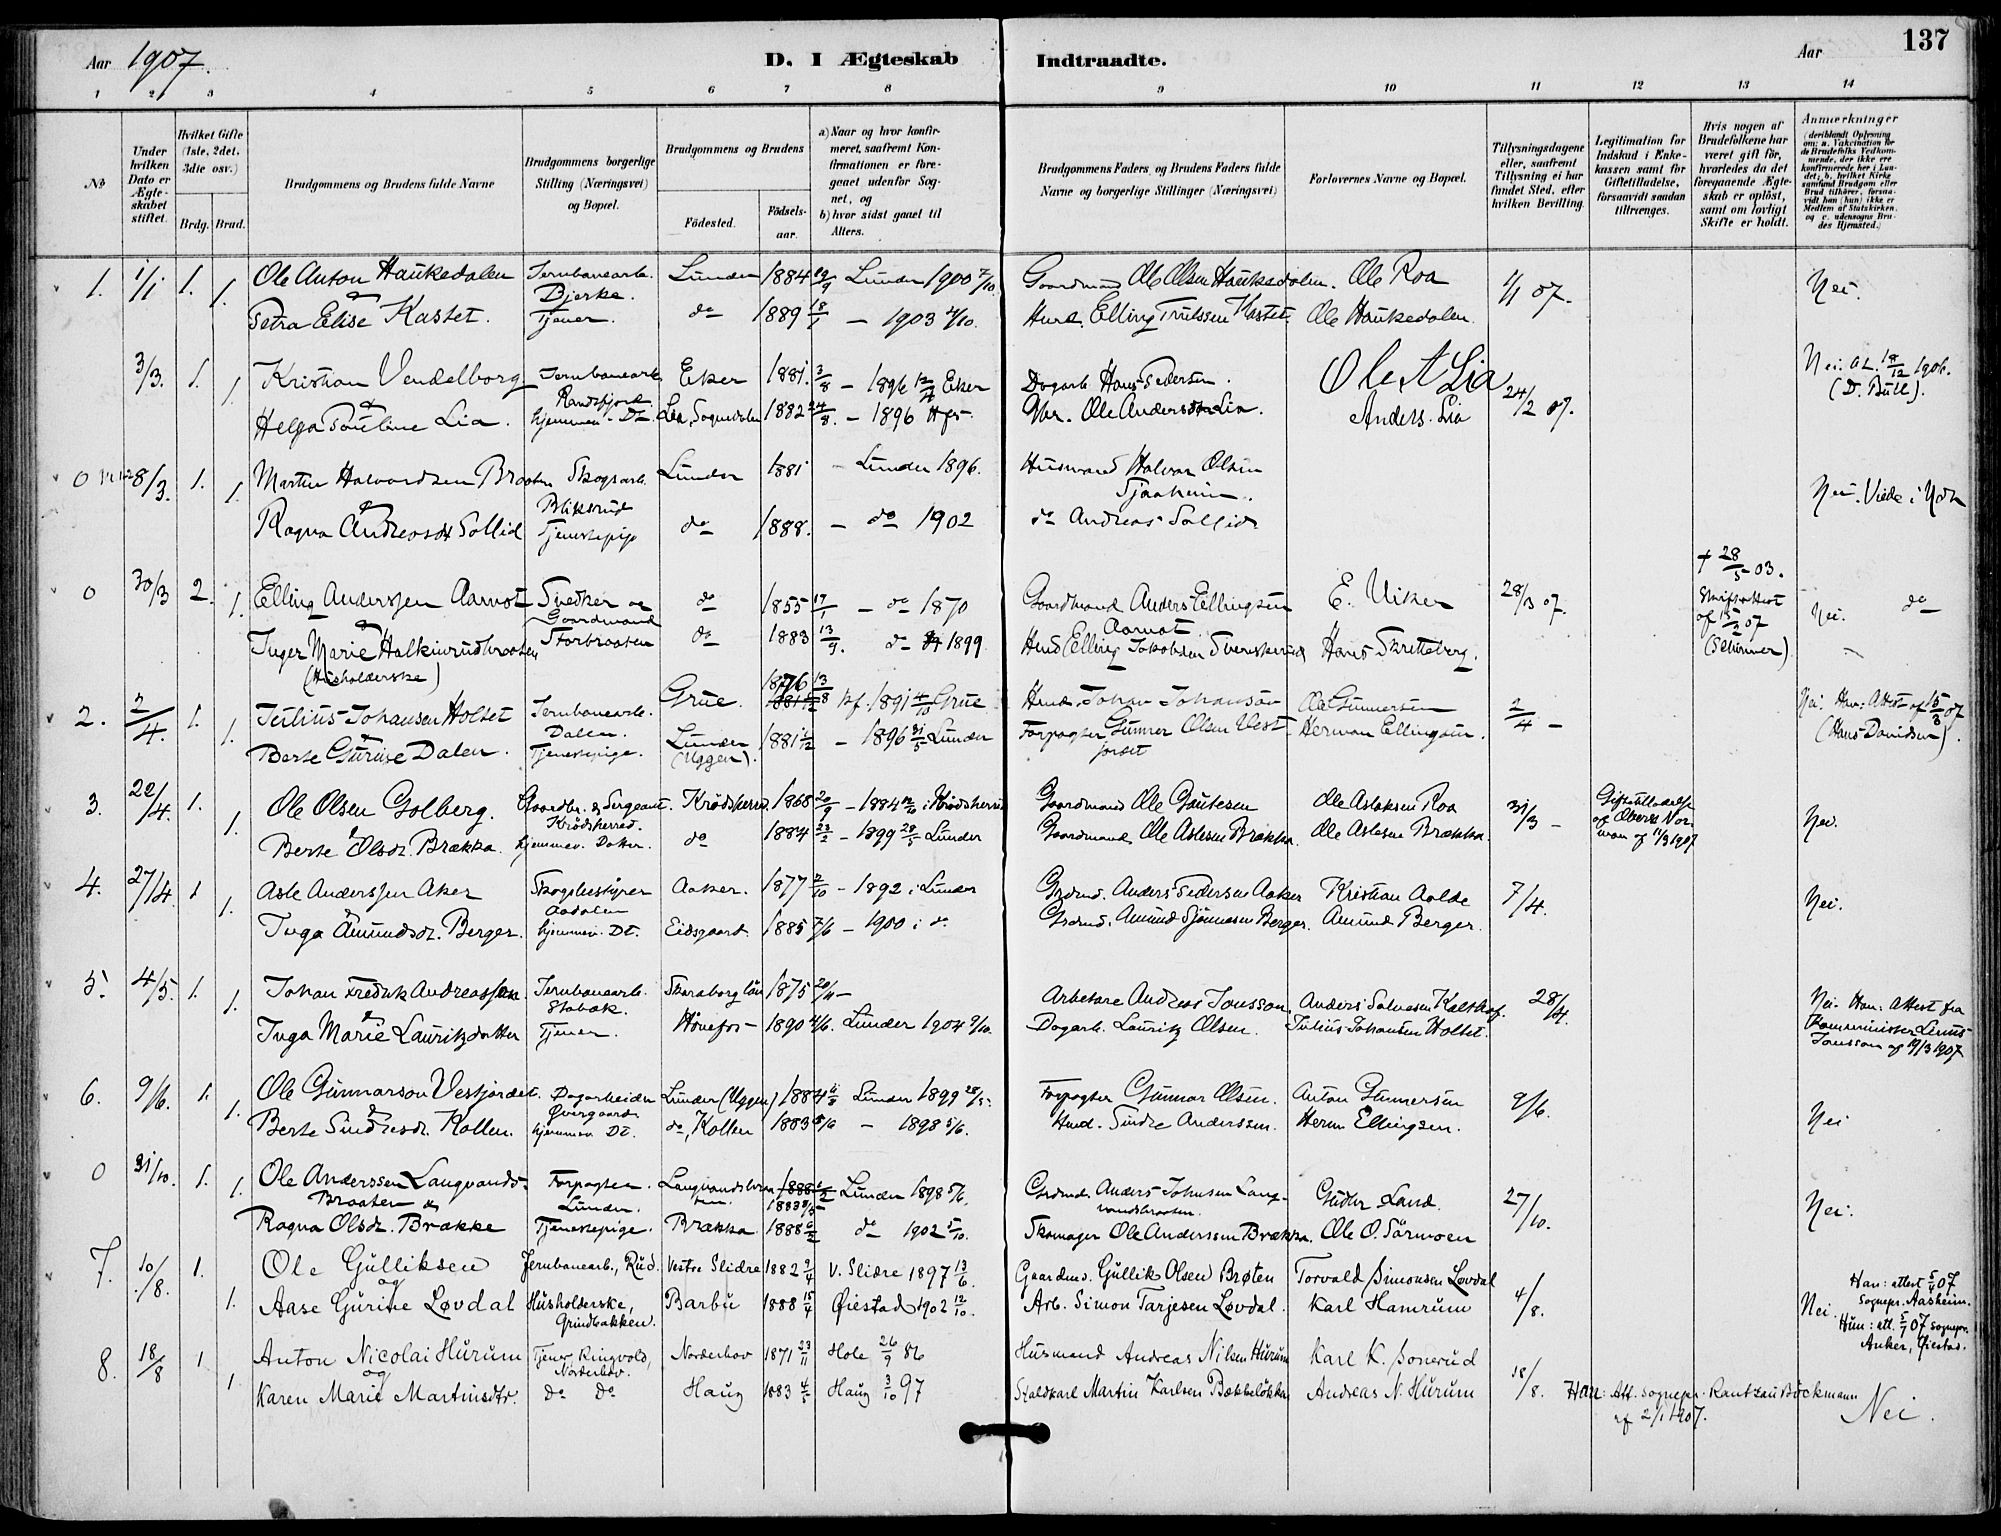 Aar 1907. D. I Ægteskab Indtraadte. Aar 137
1 2 3 4 5 6 7 8 9 10 11 12 13 14
No
Under hvilken Dato er Ægteskabet stiftet.
Hvilket Gifte (1ste, 2det, 3die osv.)
Brdg. Brud.
Brudgommens og Brudens fulde Navne
Brudgommens borgerlige Stilling (Næringsvei) og Bopæl.
Brudgommens og Brudens
Födested. Födselsaar.
a) Naar og hvor konfirmeret, saafremt Konfirmationen er foregaaet udenfor Sognet, og
b) hvor sidst gaaet til Alters.
Brudgommens Faders, og Brudens Faders fulde Navne og borgerlige Stillinger (Næringsvei)
Forlovernes Navne og Bopæl.
Tillysningsdagene eller, saafremt Tillysning ei har fundet Sted, efter hvilken Bevilling.
Legitimation for Indskud i Enkekassen samt for Giftetilladelse, forsaavidt saadan tiltrænges.
Hvis nogen af Brudefolkene har været gift før, hvorledes da det foregaaende Ægteskab er opløst, samt om lovligt Skifte er holdt.
Anmerkninger
1. 1/1 1. Ole Anton Haukedalen Jernbanearb. Lunder 1884 19/9 Lunder 1900 7/10 Gaardmand Ole Olsen Haukedalen. Ole Roa 1/1 07. Nei.
& Bjerke.
1. Petra Elise Kastet. Tjener. do 1889 18/1 — 1903 4/10. Husm. Elling Trulssen Kastet. Ole Haukedalen.
3/3. 1. Kristian Vendelborg Jernbanearb. Eker 1881. 3/8 — 1896 Eker Dagarb. Hans Pedersen. Ole A Lia 24/2 07. Nei. at. 18/12 1906.
& Randsfjord (D. Bull).
1. Helga Pauline Lia. hjemmev. Dt. Lia, Sognedalen 1882 24/8. — 1896 Hfs. Ole Anderssen Lia. Anders. Lia
0 8/3. 1. Martin Halvardsen Braaten Skogsarb. Lunder 1881 — Lunder 1896. Husmand Halvar Olsen Nei. Viede i Ndh
& Bliksrud Sjaaheim.
1. Ragna Andreasdt Sollid Tjenestepige do 1888. — do 1902 do Andreas Sollid
† 28/5 03.
0 30/3 2. Elling Anderssen Aarnot Snedker og do 1855 17/1 — do 1870 Gaardmand Anders Ellingsen E. Viker 28/3 07. Skifteattest Nei. do
& Gaardmand Aarnot af 15/2 07
1. Inger Marie Halkinrudbraaten Storbraaten do 1883 13/9. do 1899 Husm. Elling Jakobsen Svenskerud Hans Skretteberg. (Schirmer)
(Husholderske)
2. 2/4. 1. Julius Johansen Holtet Jernbanearb. Grue 1876 13/8 kf. 1891 4/10 Grue Husm. Johan Johanson Ole Gunnersen 2/4 — Nei. Han: Attest af 15/3 07
& Dalen. (Hans Davidsen).
1. Berte Gurine Dalen. Tjenestepige. Lunder (Uggen). 1881 1/12 — 1896 31/5 Lunder Forpagter Gunner Olsen Vestjordet Herman Ellingsen.
3. 22/4. 1. Ole Olsen Golberg. Gaardbr. & Sergeant. Krødsherred. 1868 20/9 — 1884 12/10 i Krødsherred Gaardmand Ole Gautesen Ole Aslaksen Roa 31/3 — Giftetilladelse Nei.
& Krødsherred. af Oberst Norman af 11/3 1907
1. Berte Olsdt. Brækka. hjemmev. Datter. do 1884 22/2 — 1899 28/5 Lunder Gaardmand Ole Aslesen Brækka. Ole Aslesen Brækka.
4. 27/4 1 Asle Anderssen Aker Skogbestyrer Aaker. 1877 2/10 — 1892 i Lunder Grdmd. Anders Pedersen Aaker Kristian Aolde 7/4. Nei.
& Aadalen
1. Inga Amundsdt. Berger. hjemmev. Dt. Eidsgaard. 1885 7/6 — 1900 i do Grdmd. Amund Sjønnesen Berger. Amund Berger.
5. 4/5. 1. Johan Fredrik Andreassen. Jernbanearb. Skaraborg län 1875 20/11 — Arbetare Andreas Jonsson Anders 28/4. Nei. Han: Attest fra
& Stabæk. Komminister Linus
1. Inga Marie Lauritzdatter Tjener. Hønefos 1890 4/6. Lunder 1904 9/10. Dagarb. Lauritz Olsen. Julius Johansen Holtet. Jonsson af 19/3 1907
6. 9/6. 1. Ole Gunnarson Vestjordet. Dagarbeider Lunder (Uggen) 1884 Lunder 1899 28/5. Forpagter Gunnar Olsen. Anton Gunnersen 9/6. Nei
& Øvergaard.
1. Berte Sindresdt. Kollen. hjemmev. Dt. do, Kollen 1883 8/6 — 1898 5/6. Husd. Sindre Anderssen. Herm Ellingsen.
0 31/10. 1. Ole Anderssen Langvands- Forpagter. Langvandsbraaten 1888 1/2 Lunder 1898 5/6. Grdmd. Anders Johnsen Lang- Gudbr. Land. 27/10. Nei.
Braaten & Lunder. 1883 vandsbraaten.
1. Ragna Olsdt. Brække Tjenestepige. Brækka 1888 6/2 do 1902 5/10. Skomager Ole Anderssen Brækka. Ole O. Sørmoen
7. 10/8. 1. Ole Gulliksen Jernbanearb., Rud. Vestre Slidre 1882 9/4 V. Slidre 1897 13/6. Gaardmd. Gullik Olsen Brøten Torvald Simonsen Løvdal 4/8. Nei. Han: attest 5/7 07 Sognepr. Aasheim.
og
1. Aase Gurine Løvdal Husholderske, Grindbakken. Barbu 1888 15/4 Øiestad 1902 12/10. Arb. Simon Tarjesen Løvdal. Karl Hamrum Hun: att. 5/7 07 sognepr. Anker, Øiestad.
8. 18/8 1 Anton Nicolai Hurum Tjener Ringvold, Norderhov. Norderhov 1871 23/11 Hole 26/9 86 Husmand Andreas Nilsen Hurum Karl K. Sonerud 18/8. Han: Att. sognepr. Rantzau Bøckmann af 2/1 1907. Nei.
og
1 Karen Marie Martinsdtr. do do Haug 1883 4/5 Haug 3/10 97 Staldkarl Martin Karlsen Bækkeløkka Andreas N. Hurum